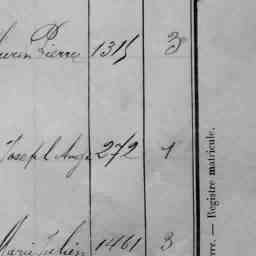 Pierre 1315 3
Joseph Ange 272 1
Marie Julien 1461 3
Registre matricule.